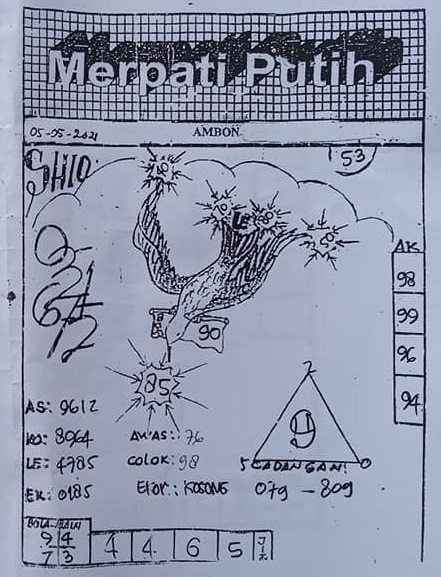 Merpati Putih
05-05-2021
AMBON
53
SHIO:
AK
98
99
96
94
90
85
AS: 9612
KO: 8964
LE: 4785
EK: 0185
AWAS: 76
COLOK: 98
Ekor: KOSONG
2
9
5
0
CADANGAN!
079 - 809
BOLA-JALIN
9 4
7 3
4 4 6 5